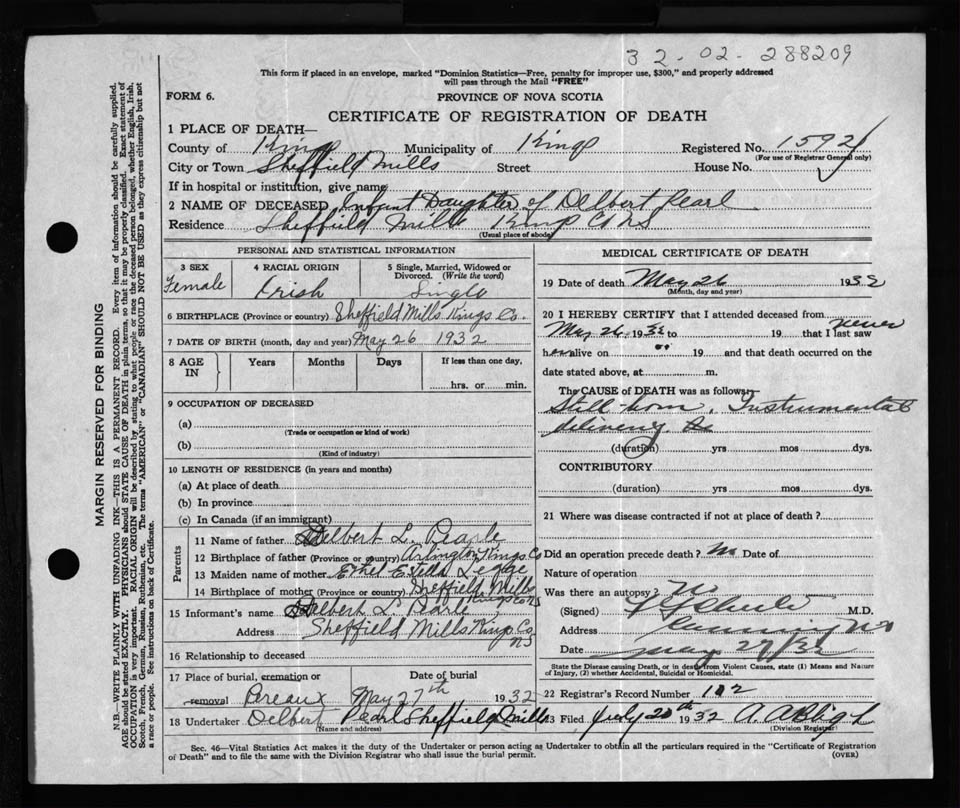 32-02-288209
This form if placed in an envelope, marked "Dominion Statistics—Free, penalty for improper use, $300," and properly addressed
will pass through the Mail "FREE"
FORM 6.
PROVINCE OF NOVA SCOTIA
CERTIFICATE OF REGISTRATION OF DEATH
1 PLACE OF DEATH—
County of Kings Municipality of Kings Registered No. 1592
(For use of Registrar General only)
City or Town Sheffield Mills Street House No.
If in hospital or institution, give name
2 NAME OF DECEASED Infant Daughter of Delbert Pearl
Residence Sheffield Mills Kings Co NS
(Usual place of abode)
PERSONAL AND STATISTICAL INFORMATION
3 SEX
Female
4 RACIAL ORIGIN
Irish
5 Single, Married, Widowed or
Divorced. (Write the word)
Single
6 BIRTHPLACE (Province or country) Sheffield Mills Kings Co.
7 DATE OF BIRTH (month, day and year) May 26 1932
8 AGE
IN
Years Months Days If less than one day,
hrs. or min.
9 OCCUPATION OF DECEASED
(a)
(Trade or occupation or kind of work)
(b)
(Kind of industry)
10 LENGTH OF RESIDENCE (in years and months)
(a) At place of death
(b) In province
(c) In Canada (if an immigrant)
Parents
11 Name of father Delbert L. Pearle
12 Birthplace of father (Province or country) Arlington Kings Co
13 Maiden name of mother Ethel Estella Legge
14 Birthplace of mother (Province or country) Sheffield Mills
Kings Co NS
15 Informant's name Delbert L. Pearle
Address Sheffield Mills Kings Co
NS
16 Relationship to deceased
17 Place of burial, cremation or
removal Pereaux
Date of burial
May 27th 1932
18 Undertaker Delbert Pearl Sheffield Mills
(Name and address)
MEDICAL CERTIFICATE OF DEATH
19 Date of death May 26 1932
(Month, day and year)
20 I HEREBY CERTIFY that I attended deceased from
May 26, 1932 to 19 that I never last saw
her alive on 19 and that death occurred on the
date stated above, at m.
The CAUSE of DEATH was as follows—
Still-born. Instrumental
delivery.
(duration) yrs mos dys.
CONTRIBUTORY
(duration) yrs mos dys.
21 Where was disease contracted if not at place of death?
Did an operation precede death? no Date of
Nature of operation
Was there an autopsy?
(Signed) M.D.
Address Canning NS
Date May 29/32
State the Disease causing Death, or in death from Violent Causes, state (1) Means and Nature
of Injury, (2) whether Accidental, Suicidal or Homicidal.
22 Registrar's Record Number 102
23 Filed July 20th 1932
(Division Registrar)
Sec. 46—Vital Statistics Act makes it the duty of the Undertaker or person acting as Undertaker to obtain all the particulars required in the "Certificate of Registration
of Death" and to file the same with the Division Registrar who shall issue the burial permit.
(OVER)
MARGIN RESERVED FOR BINDING
N.B.—WRITE PLAINLY WITH UNFADING INK—THIS IS A PERMANENT RECORD. Every item of information should be carefully supplied.
AGE should be stated EXACTLY. PHYSICIANS should STATE CAUSE OF DEATH in plain terms, so that it may be properly classified. Exact statement of
OCCUPATION is very important. RACIAL ORIGIN will be described by stating to what people or race the deceased person belonged, whether English, Irish,
Scotch, French, German, Russian, Ruthenian, etc. The terms "AMERICAN" or "CANADIAN" SHOULD NOT BE USED as they express citizenship but not
a race or people. See instructions on back of Certificate.